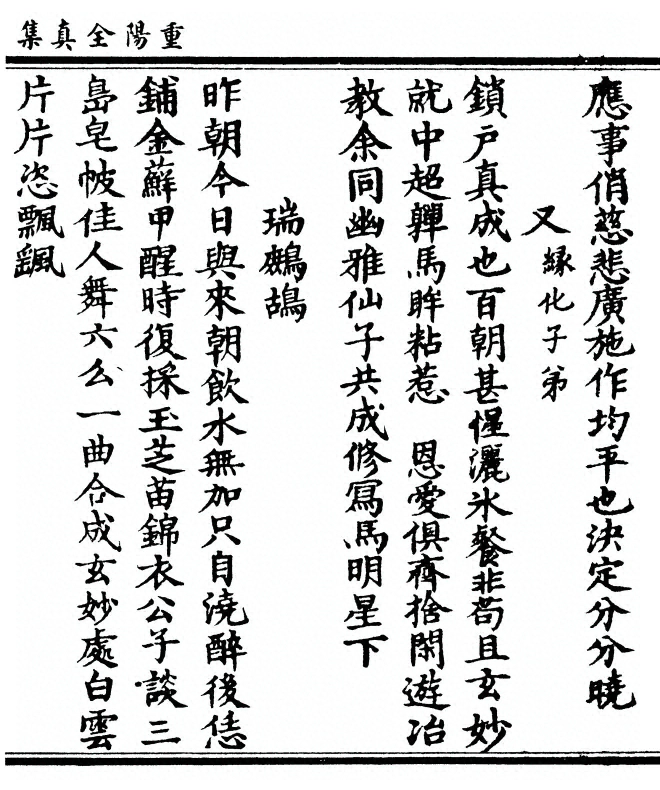 重陽全真集
應事俏慈悲廣施作均平也決定分分曉
又 緣化子弟
鎖戶真成也百朝甚惺灑氷餐非苟且玄妙
就中超軃馬眸粘惹 恩愛俱齊捨閑遊冶
教余同幽雅仙子共成修寫馬明星下
瑞鷓鴣
昨朝今日與來朝飲水無加只自澆醉後恁
鋪金蘇甲醒時復採玉芝苗錦衣公子談三
島皂帔佳人舞六么一曲合成玄妙處白雲
片片恣飄颻